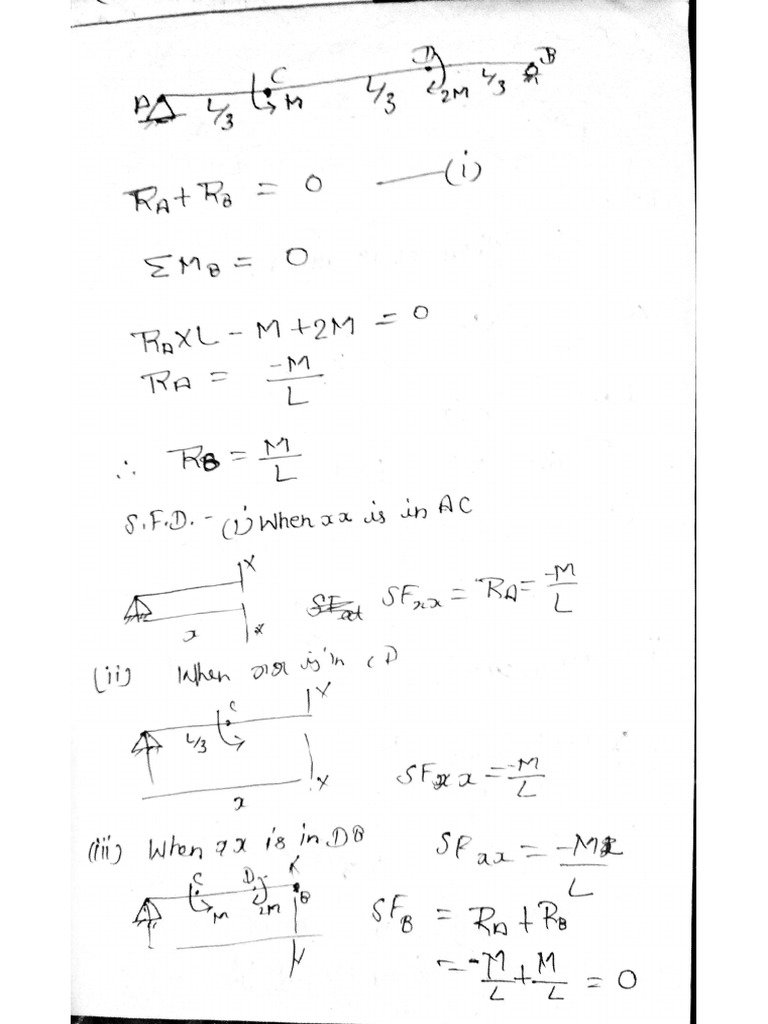 A L/3 C M L/3 D 2M L/3 B
R_A + R_B = 0 —(i)
ΣM_B = 0
R_A × L - M + 2M = 0
R_A = -M/L
∴ R_B = M/L
S.F.D. - (i) When xx is in AC
X
x X
SF_xx = R_A = -M/L
(ii) When xx is in CD
C X
L/3
X
x
SF_xx = -M/L
(iii) When xx is in DB
SF_xx = -M/L
C D X
M 2M B
SF_B = R_A + R_B
= -M/L + M/L = 0